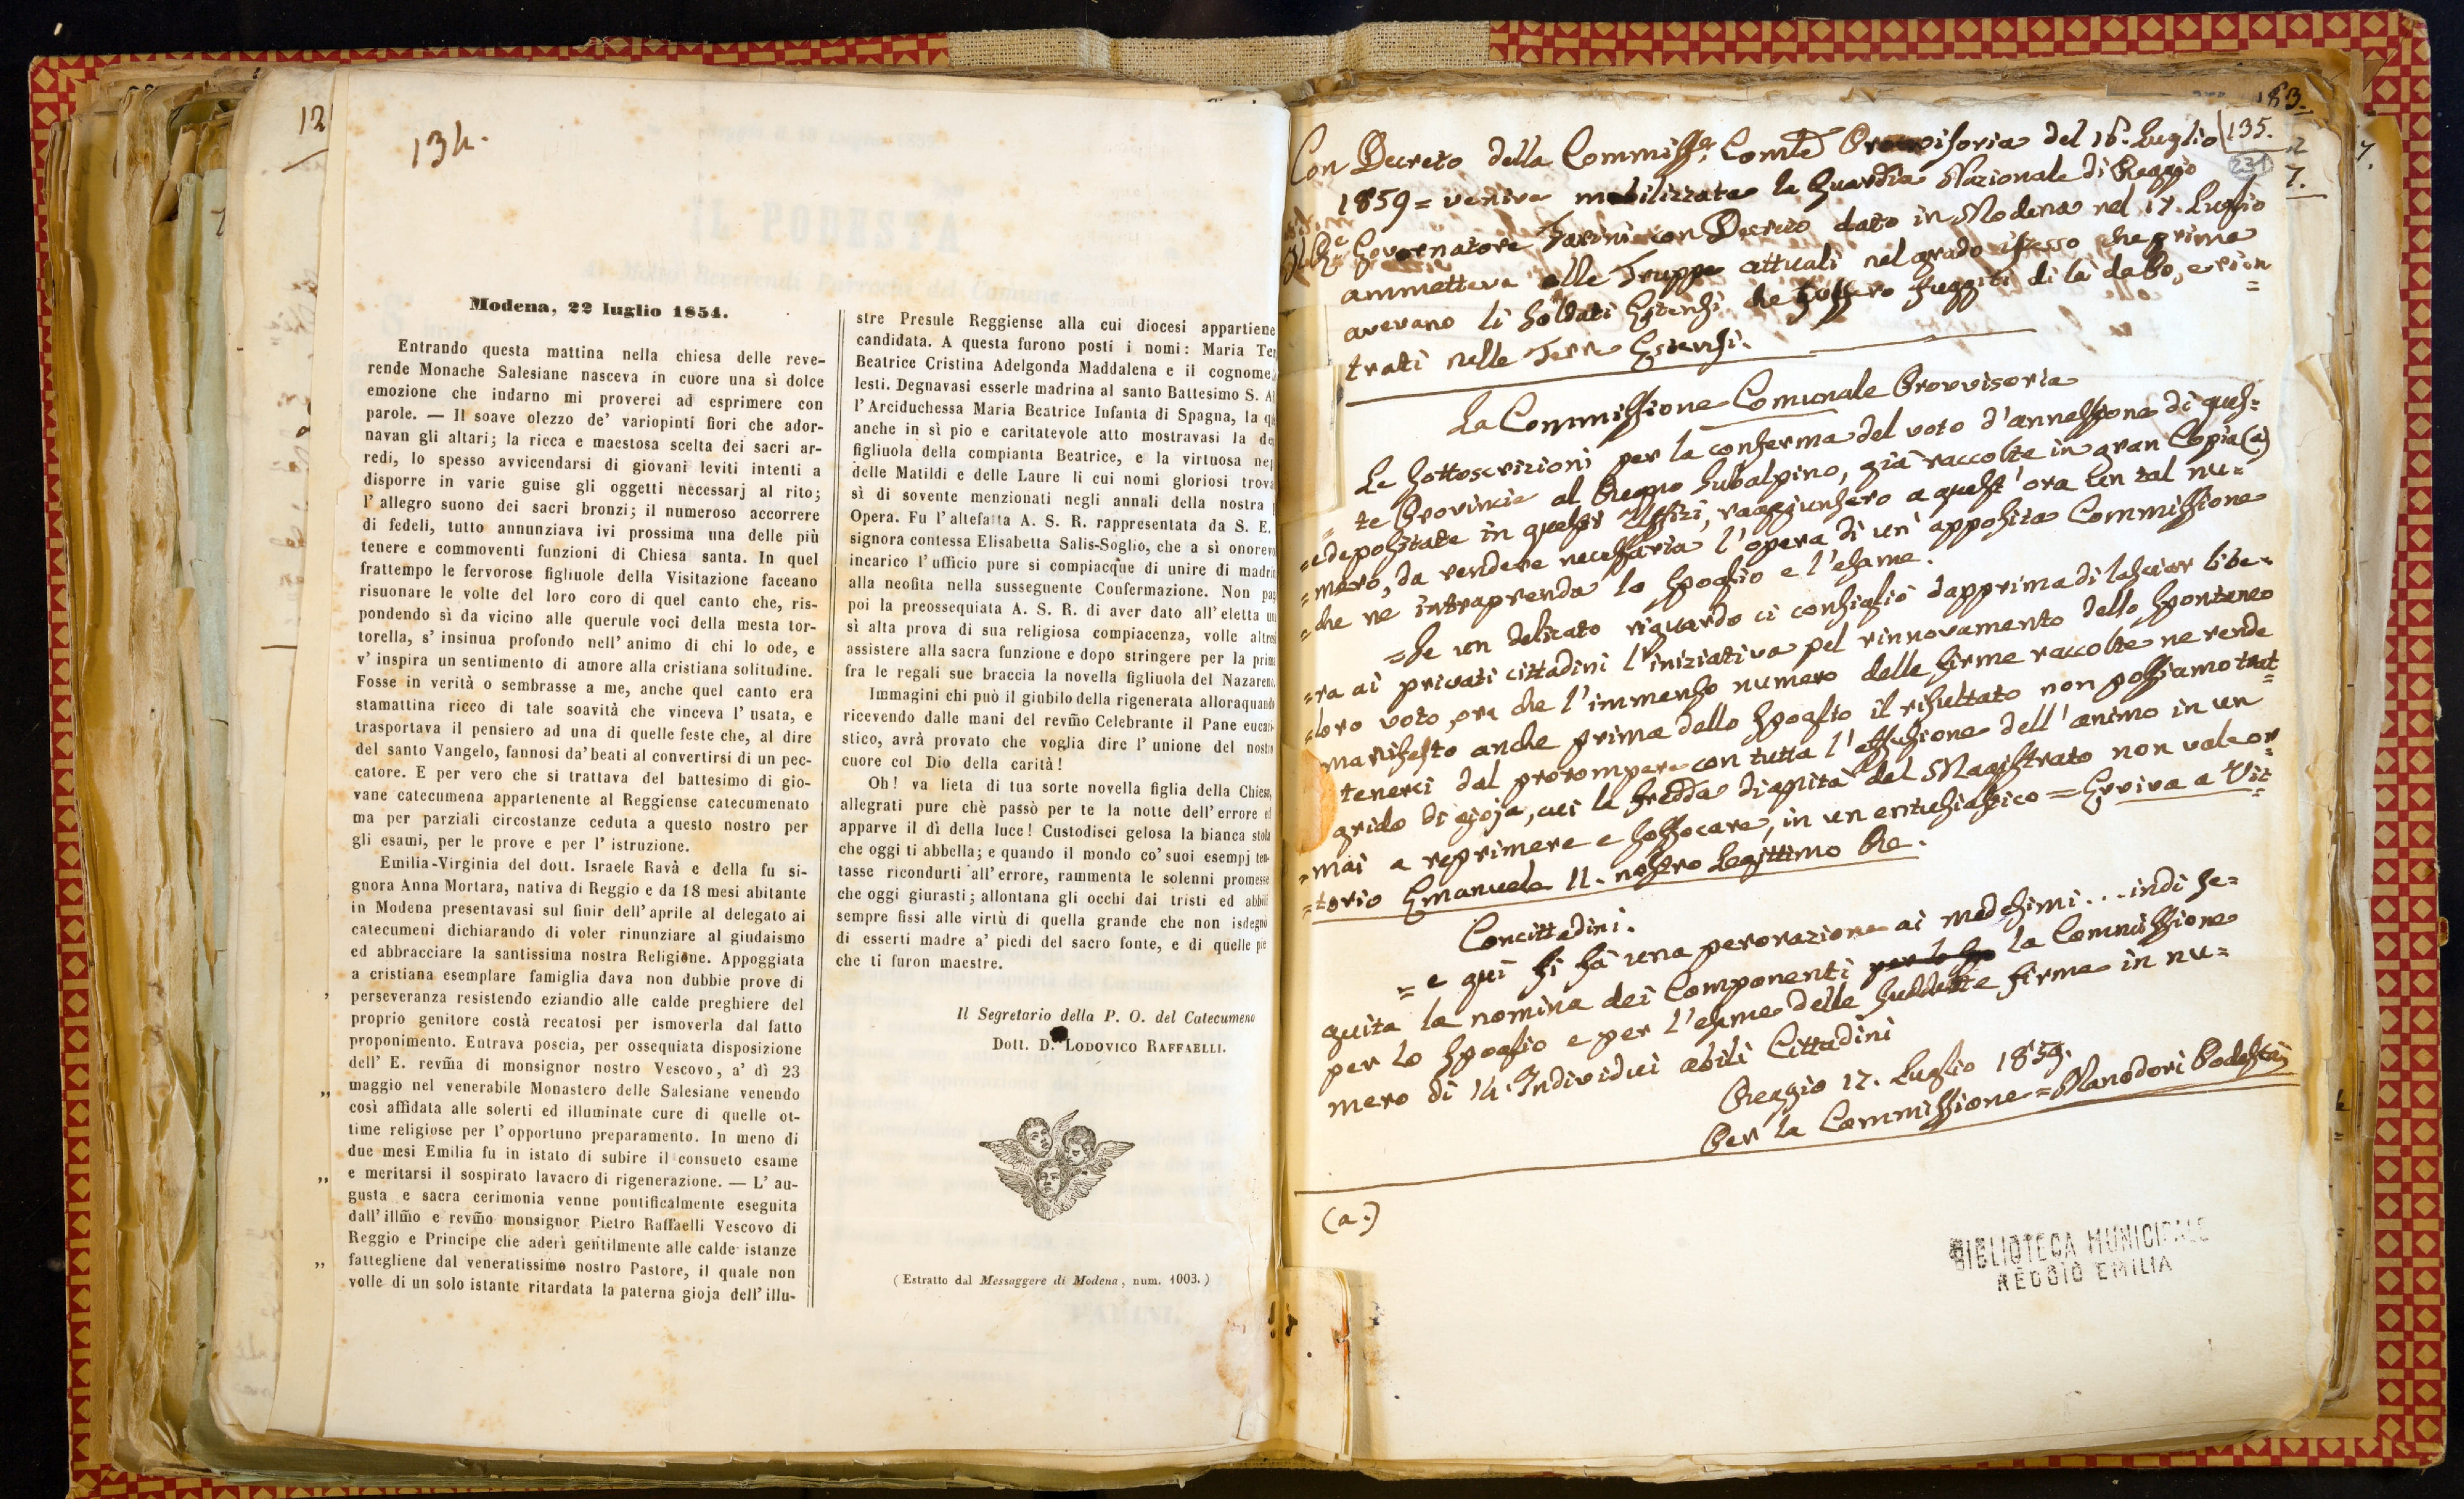 12
134.
Modena, 22 luglio 1854.
Entrando questa mattina nella chiesa delle reve-
rende Monache Salesiane nasceva in cuore una sì dolce
emozione che indarno mi proverei ad esprimere con
parole. — Il soave olezzo de' variopinti fiori che ador-
navan gli altari; la ricca e maestosa scelta dei sacri ar-
redi, lo spesso avvicendarsi di giovani leviti intenti a
disporre in varie guise gli oggetti necessarj al rito;
l'allegro suono dei sacri bronzi; il numeroso accorrere
di fedeli, tutto annunziava ivi prossima una delle più
tenere e commoventi funzioni di Chiesa santa. In quel
frattempo le fervorose figliuole della Visitazione faceano
risuonare le volte del loro coro di quel canto che, ris-
pondendo sì da vicino alle querule voci della mesta tor-
torella, s'insinua profondo nell'animo di chi lo ode, e
v'inspira un sentimento di amore alla cristiana solitudine.
Fosse in verità o sembrasse a me, anche quel canto era
stamattina ricco di tale soavità che vinceva l'usata, e
trasportava il pensiero ad una di quelle feste che, al dire
del santo Vangelo, fannosi da'beati al convertirsi di un pec-
catore. E per vero che si trattava del battesimo di gio-
vane catecumena appartenente al Reggiense catecumenato
ma per parziali circostanze ceduta a questo nostro per
gli esami, per le prove e per l'istruzione.
Emilia-Virginia del dott. Israele Ravà e della fu si-
gnora Anna Mortara, nativa di Reggio e da 18 mesi abitante
in Modena presentavasi sul finir dell'aprile al delegato ai
catecumeni dichiarando di voler rinunziare al giudaismo
ed abbracciare la santissima nostra Religione. Appoggiata
a cristiana esemplare famiglia dava non dubbie prove di
perseveranza resistendo eziandio alle calde preghiere del
proprio genitore costà recatosi per ismoverla dal fatto
proponimento. Entrava poscia, per ossequiata disposizione
dell'E. revm̃a di monsignor nostro Vescovo, a' dì 23
maggio nel venerabile Monastero delle Salesiane venendo
così affidata alle solerti ed illuminate cure di quelle ot-
time religiose per l'opportuno preparamento. In meno di
due mesi Emilia fu in istato di subire il consueto esame
e meritarsi il sospirato lavacro di rigenerazione. — L'au-
gusta e sacra cerimonia venne pontificalmente eseguita
dall'illm̃o e revm̃o monsignor Pietro Raffaelli Vescovo di
Reggio e Principe che aderì gentilmente alle calde istanze
fattegliene dal veneratissimo nostro Pastore, il quale non
volle di un solo istante ritardata la paterna gioja dell'illu-
stre Presule Reggiense alla cui diocesi appartiene
candidata. A questa furono posti i nomi: Maria Ter
Beatrice Cristina Adelgonda Maddalena e il cognome
lesti. Degnavasi esserle madrina al santo Battesimo S. A
l'Arciduchessa Maria Beatrice Infanta di Spagna, la qu
anche in sì pio e caritatevole atto mostravasi la de
figliuola della compianta Beatrice, e la virtuosa nep
delle Matildi e delle Laure li cui nomi gloriosi trova
sì di sovente menzionati negli annali della nostra
Opera. Fu l'altefatta A. S. R. rappresentata da S. E.
signora contessa Elisabetta Salis-Soglio, che a sì onorev
incarico l'ufficio pure si compiacque di unire di madri
alla neofita nella susseguente Confermazione. Non pa
poi la preossequiata A. S. R. di aver dato all'eletta un
sì alta prova di sua religiosa compiacenza, volle altre
assistere alla sacra funzione e dopo stringere per la prim
fra le regali sue braccia la novella figliuola del Nazareno.
Immagini chi può il giubilo della rigenerata alloraquando
ricevendo dalle mani del revm̃o Celebrante il Pane eucari-
stico, avrà provato che voglia dire l'unione del nostro
cuore col Dio della carità!
Oh! va lieta di tua sorte novella figlia della Chiesa,
allegrati pure chè passò per te la notte dell'errore ed
apparve il dì della luce! Custodisci gelosa la bianca stola
che oggi ti abbella; e quando il mondo co' suoi esempj ten-
tasse ricondurti all'errore, rammenta le solenni promesse
che oggi giurasti; allontana gli occhi dai tristi ed abbili
sempre fissi alle virtù di quella grande che non isdegnò
di esserti madre a' piedi del sacro fonte, e di quelle pie
che ti furon maestre.
Il Segretario della P. O. del Catecumeno
Dott. D. LODOVICO RAFFAELLI.
(Estratto dal Messaggere di Modena, num. 1003.)
183.
135.
231
7.
Con Decreto della Commiss. Com.le Provvisoria del 16. Luglio
1859 = veniva mobilizzata la Guardia Nazionale di Reggio
Governatore Farini con Decreto dato in Modena nel 17. Luglio
ammetteva alle Truppe attuali nel grado istesso che prima
avevano li Soldati Estensi che fossero fuggiti di là da Po, e rien
=
trati nelle Terre Estensi.
La Commissione Comunale Provvisoria
Le sottoscrizioni per la conferma del voto d'annessione di ques=
= te Provincie al Regno Subalpino, già raccolte in gran Copia (a)
= e depositate in questi Uffizi, raggiunsero a quest'ora un tal nu=
= mero, da rendere necessaria l'opera di un'apposita Commissione
= che ne intraprenda lo spoglio e l'esame.
= Se un delicato riguardo ci consigliò dapprima di lasciar libe=
= ra ai privati cittadini l'iniziativa pel rinnovamento dello spontaneo
= loro voto, ora che l'immenso numero delle firme raccolte ne rende
manifesto anche prima dello spoglio il risultato non possiamo trat
=
tenerci dal prorompere con tutta l'effusione dell'animo in un
grido di gioja, cui la fredda dignità del Magistrato non vale or
=
= mai a reprimere e soffocare, in un entusiastico = Evviva a Vit
=
= torio Emanuele II. nostro Legittimo Re.
Concittadini.
= e qui si fà una perorazione ai medesimi... indi se=
guita la nomina dei Componenti la Commissione
per lo spoglio e per l'esame delle suddette firme in nu=
mero di 14. Individui abili Cittadini
Reggio 17. Luglio 1859.
Per la Commissione = Manodori Podestà
(a.)
BIBLIOTECA MUNICIPALE
REGGIO EMILIA